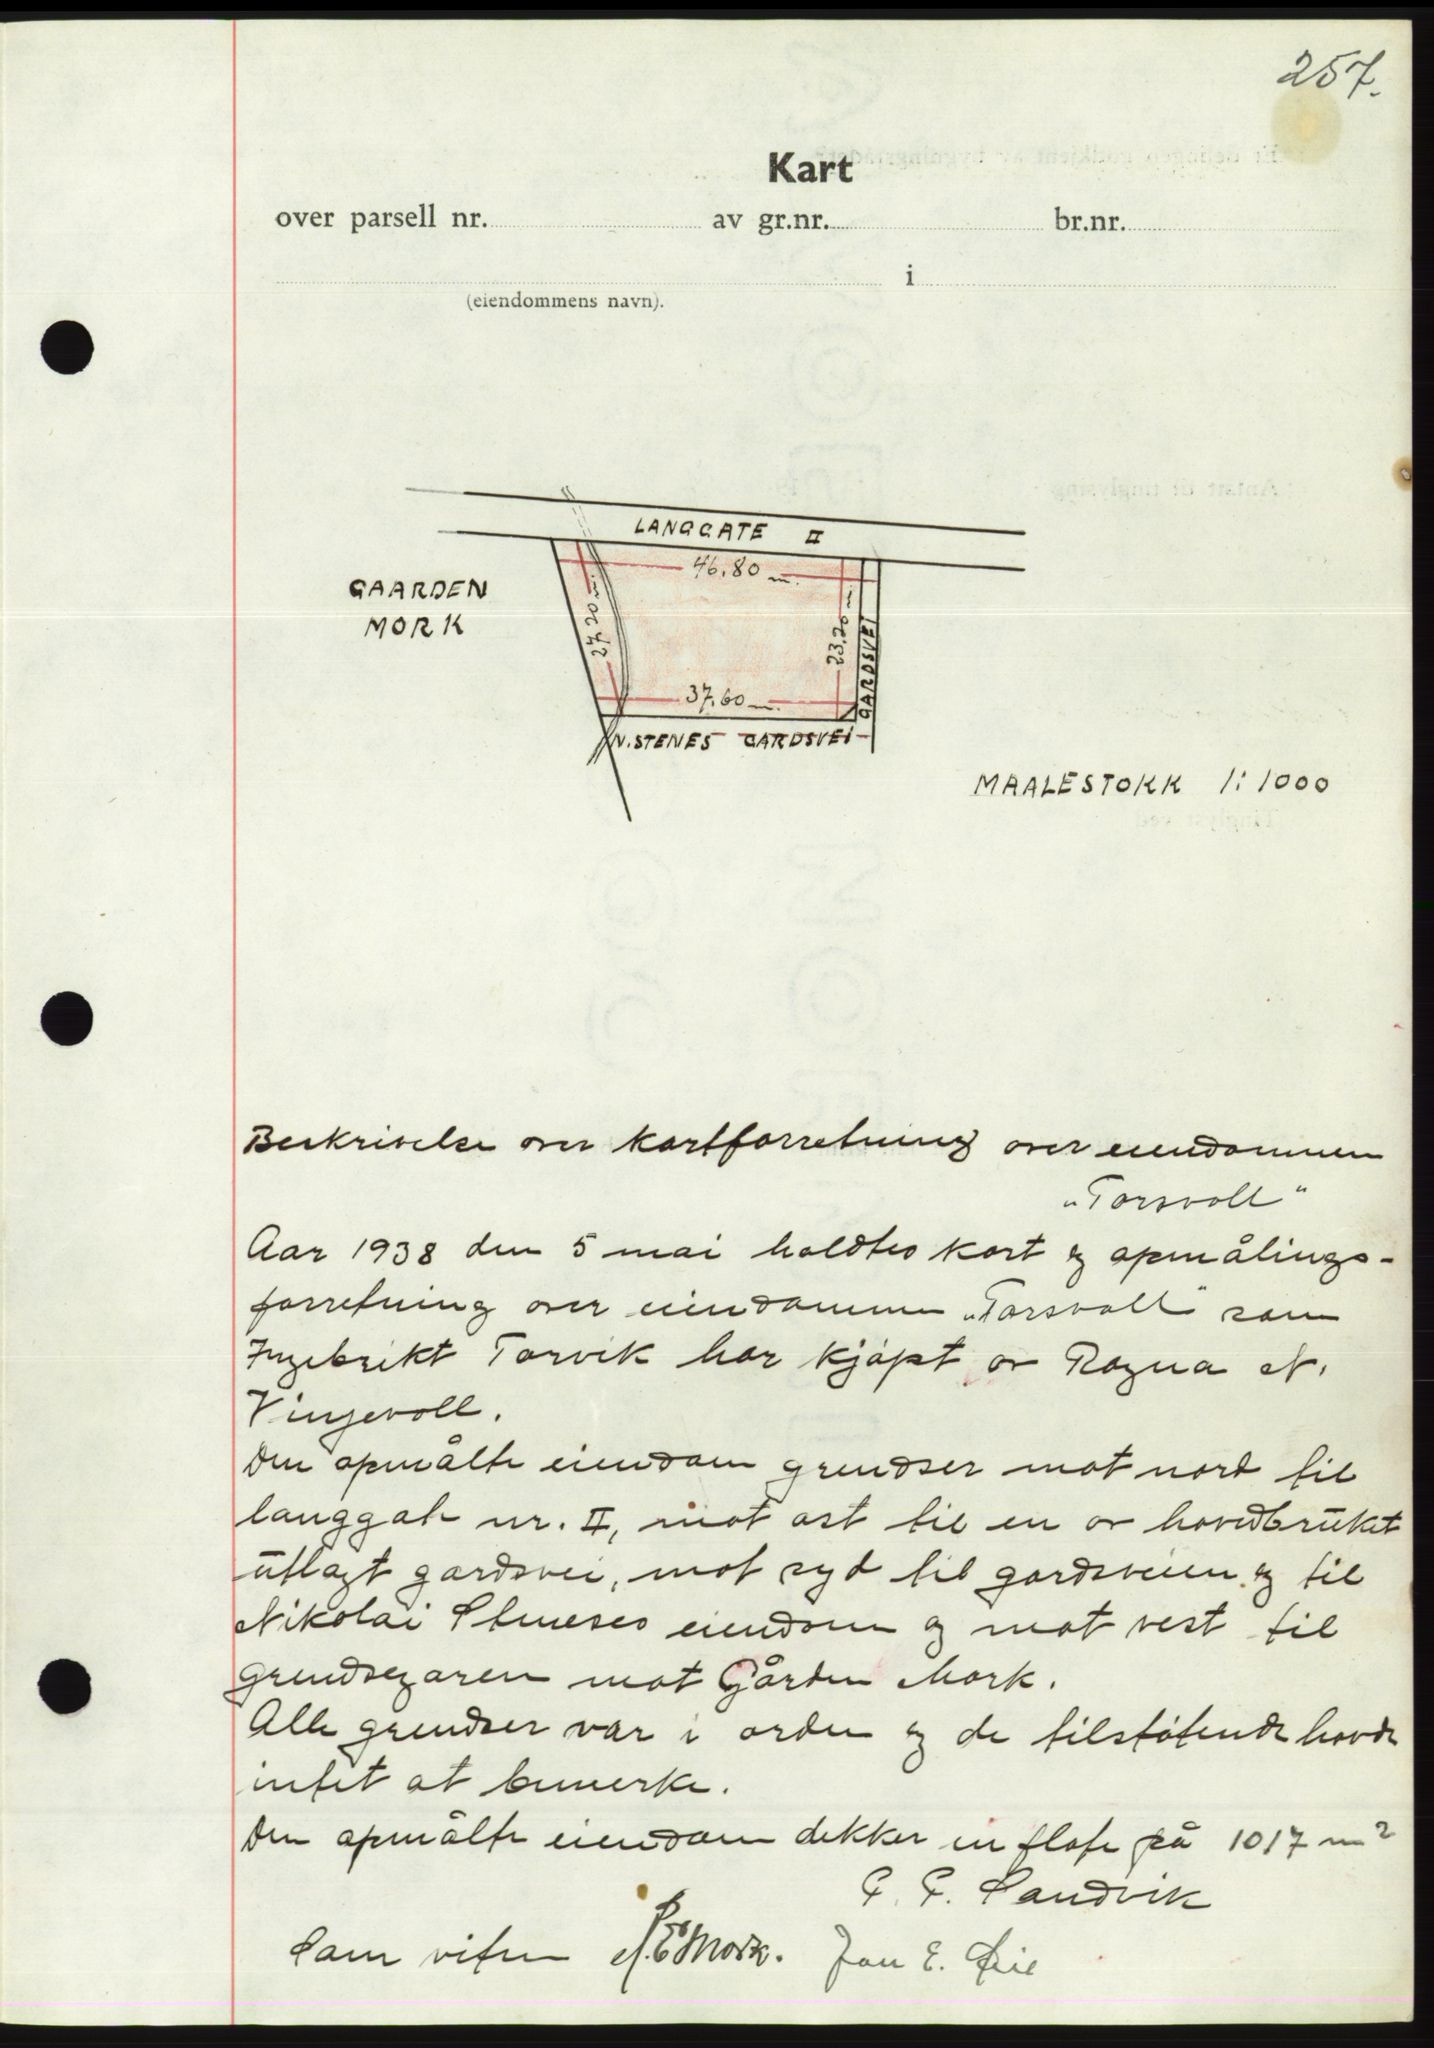 257.
Kart
over parsell nr. av gr.nr. br.nr.
i
(eiendommens navn).
LANGGATE II
46,80 m.
GAARDEN
MORK
27,20 m.
23,20 m.
GARDSVEI
37,60 m.
N. STENES GARDSVEI
MAALESTOKK 1:1000
Beskrivelse over kartforretning over eiendommen
"Torsvoll"
Aar 1938 den 5 mai holdtes kart og opmålings-
forretning over eiendommen "Torsvoll" som
Ingebrikt Torvik har kjøpt av Ragna N.
Vingevoll.
Den opmålte eiendom grendser mot nord til
langgate nr. II, mot ost til en av hovedbruket
utlagt gardsvei, mot syd til gardsveien og til
Nikolai Steneses eiendom og mot vest til
grendsegaren mot Gården Mork.
Alle grendser var i orden og de tilstøtende havde
intet at bemerke.
Den opmålte eiendom dekker en flate på 1017 m²
Sandvik
Som vitne Mork. Jon E. Øie